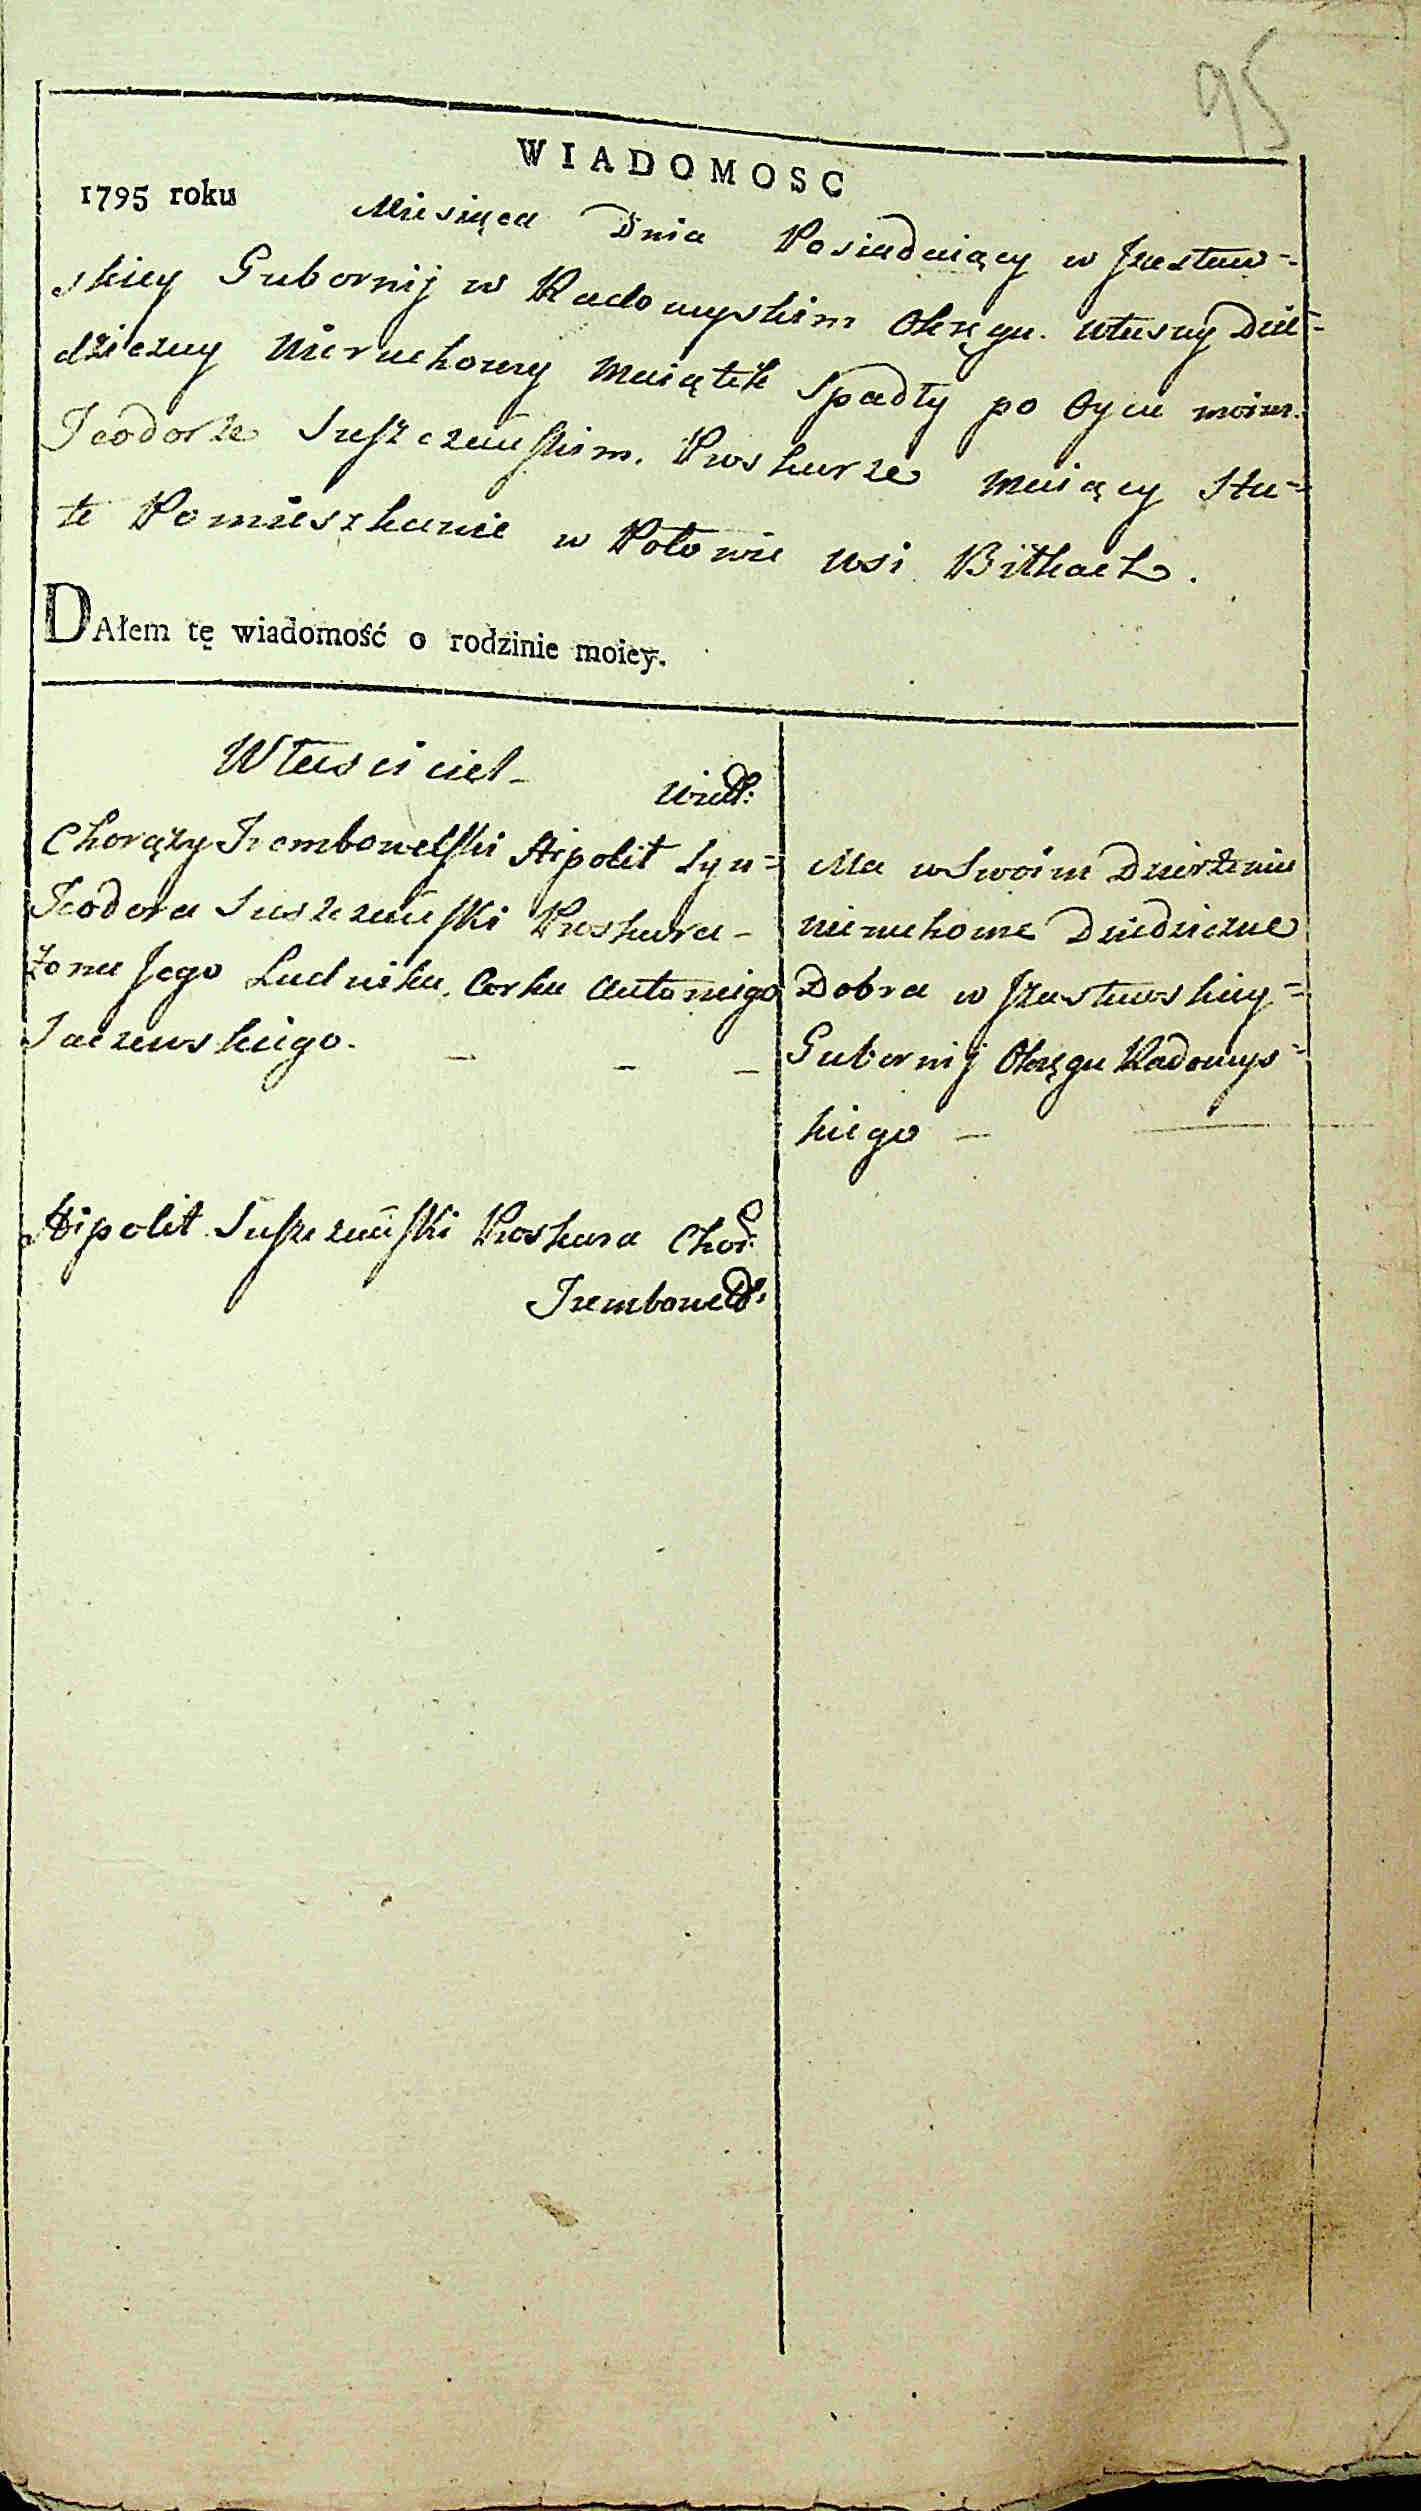 95
WIADOMOSC
1795 roku Miesiąca Dnia Posiadaiący w Jzasław-
skiey Gubernij w Radomyskim Okręgu. własny Dzie-
dziczny Nieruchomy Maiątek Spadły po Oycu moim.
Teodorze Suszczeńskim. Proskurze Maiący Sta-
łe Pomieszkanie w Połowie Wsi Bitkach.
DAłem tę wiadomość o rodzinie moiey.
Własciciel-
wieś:
Chorąży Trembowelski Hipolit Syn=
Teodora Suszczeński Proskura-
Żona Jego Ludwika. Corka Antoniego
Jaczewskiego. - - -
Ma w Swoim Dzierżeniu
nieruchome Dziedziczne
Dobra w Jzasławskiey=
Gubernij Okręgu Radomys=
kiego -
Hipolit Suszczeński Proskura Chor:
Trembowel: